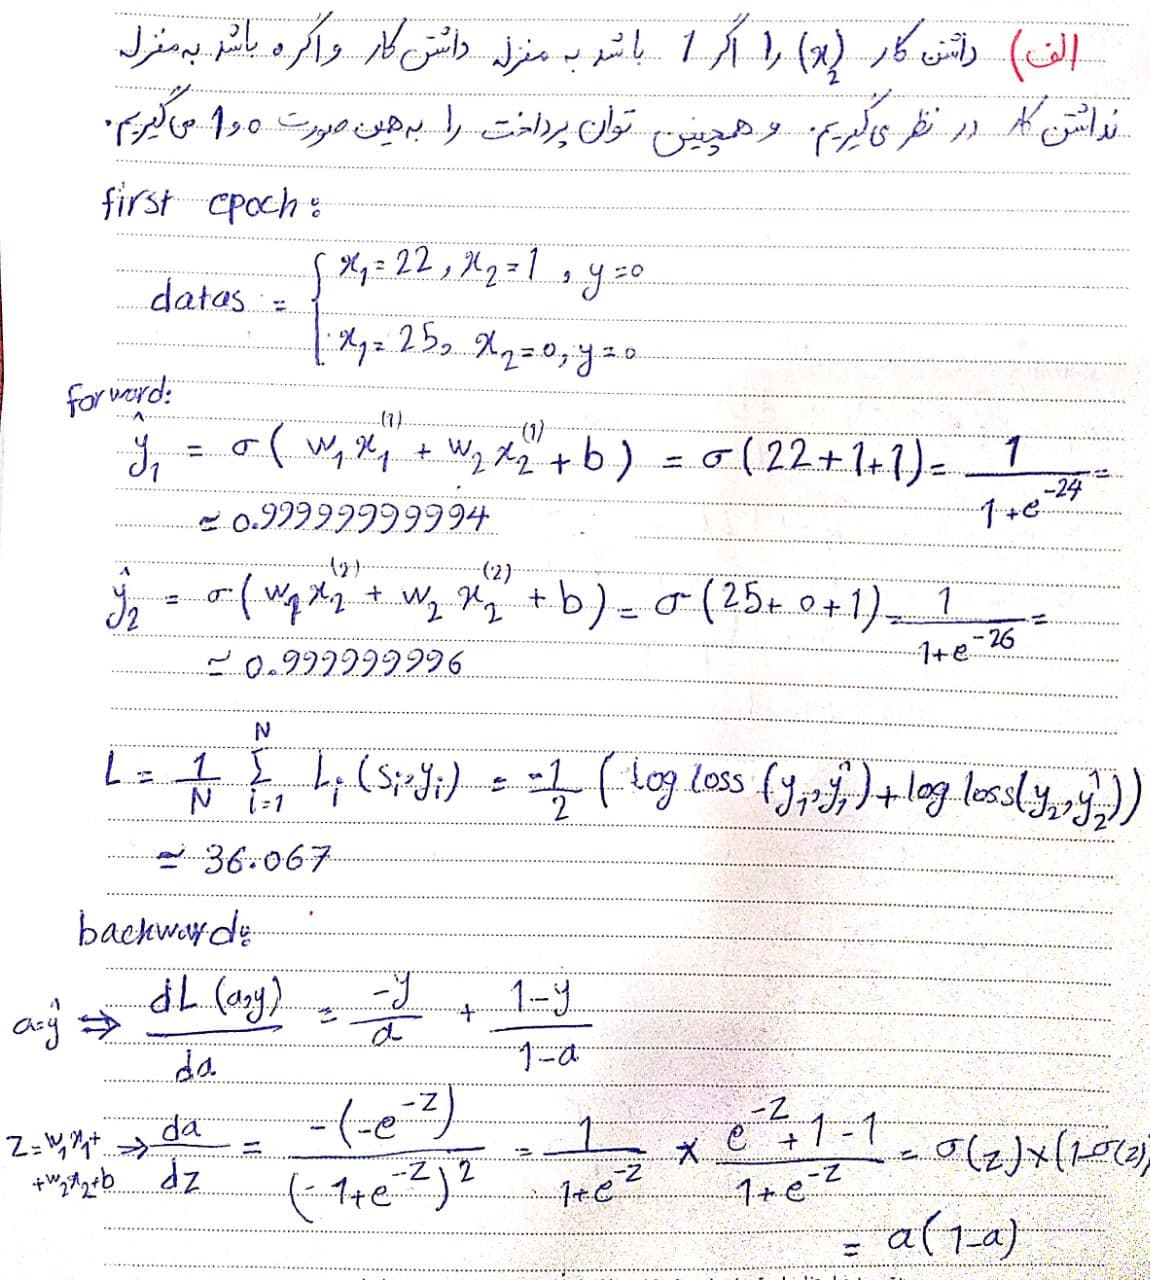 الف) داشتن کار (x₂) را اگر 1 باشد به منزله داشتن کار و اگر 0 باشد به منزله
نداشتن کار در نظر می‌گیریم. و همچنین توان پرداخت را به همین صورت 0 و 1 می‌گیریم.
first epoch:
datas = { x₁=22, x₂=1, y=0
x₁=25, x₂=0, y=0
forward:
ŷ₁ = σ( w₁x₁⁽¹⁾ + w₂x₂⁽¹⁾ + b ) = σ(22+1+1) = 1/(1+e^-24) =
≃ 0.99999999994
ŷ₂ = σ( w₁x₂⁽²⁾ + w₂x₂⁽²⁾ + b ) = σ(25+0+1) = 1/(1+e^-26) =
≃ 0.999999996
L = 1/N Σ_{i=1}^{N} Lᵢ(sᵢ,yᵢ) = -1/2 ( log loss (y₁,ŷ₁) + log loss(y₂,ŷ₂))
≃ 36.067
backward:
a=ŷ ⇒ dL(a,y)/da = -y/a + 1-y/1-a
z=w₁x₁+ +w₂x₂+b ⇒ da/dz = -(-e^-z)/(-1+e^-z)² = 1/(1+e^-z) × (e^-z+1-1)/(1+e^-z) = σ(z)×(1-σ(z))
= a(1-a)